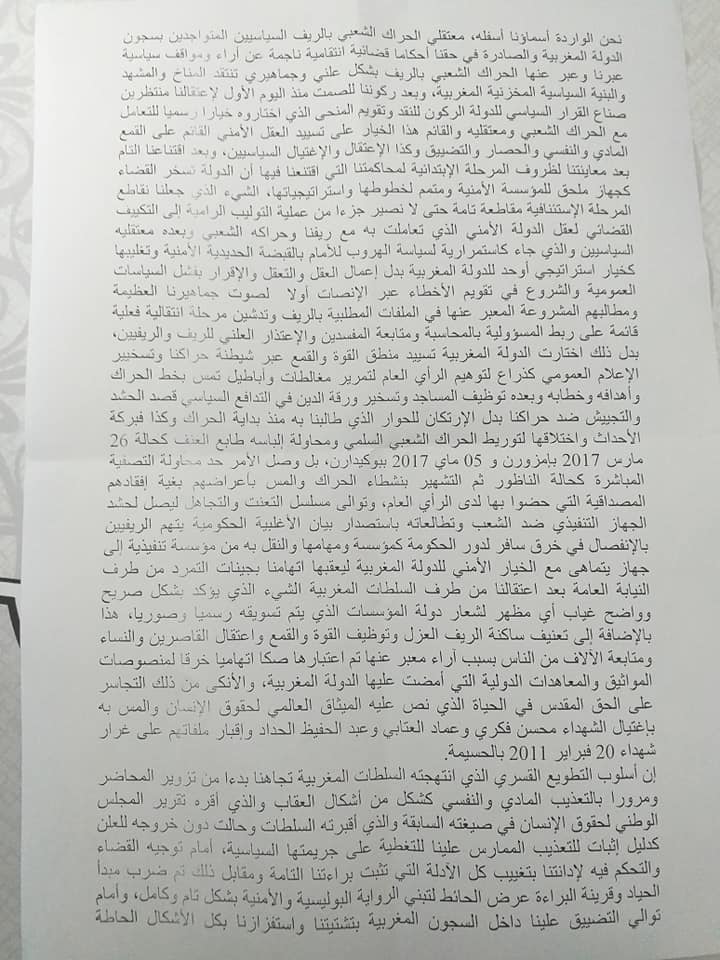 نحن الواردة أسماؤنا أسفله، معتقلي الحراك الشعبي بالريف السياسيين المتواجدين بسجون
الدولة المغربية والصادرة في حقنا أحكاما قضائية انتقامية ناجمة عن آراء ومواقف سياسية
عبرنا وعبر عنها الحراك الشعبي بالريف بشكل علني وجماهيري تنتقد المناخ والمشهد
والبنية السياسية المخزنية المغربية، وبعد ركوننا للصمت منذ اليوم الأول لإعتقالنا منتظرين
صناع القرار السياسي للدولة الركون للنقد وتقويم المنحى الذي اختاروه خيارا رسميا للتعامل
مع الحراك الشعبي ومعتقليه والقائم هذا الخيار على تسييد العقل الأمني القائم على القمع
المادي والنفسي والحصار والتضييق وكذا الإعتقال والإغتيال السياسيين، وبعد اقتناعنا التام
بعد معاينتنا لظروف المرحلة الإبتدائية لمحاكمتنا التي اقتنعنا فيها أن الدولة تسخر القضاء
كجهاز ملحق للمؤسسة الأمنية ومتمم لخطوطها واستراتيجياتها، الشيء الذي جعلنا نقاطع
المرحلة الإستئنافية مقاطعة تامة حتى لا نصير جزءا من عملية التوليب الرامية إلى التكييف
القضائي لعقل الدولة الأمني الذي تعاملت به مع ريفنا وحراكه الشعبي وبعده معتقليه
السياسيين والذي جاء كاستمرارية لسياسة الهروب للأمام بالقبضة الحديدية الأمنية وتغليبها
كخيار استراتيجي أوحد للدولة المغربية بدل إعمال العقل والتعقل والإقرار بفشل السياسات
العمومية والشروع في تقويم الأخطاء عبر الإنصات أولا لصوت جماهيرنا العظيمة
ومطالبهم المشروعة المعبر عنها في الملفات المطلبية بالريف وتدشين مرحلة انتقالية فعلية
قائمة على ربط المسؤولية بالمحاسبة ومتابعة المفسدين والإعتذار العلني للريف والريفيين،
بدل ذلك اختارت الدولة المغربية تسييد منطق القوة والقمع عبر شيطنة حراكنا وتسخيير
الإعلام العمومي كذراع لتوهيم الرأي العام لتمرير مغالطات وأباطيل تمس بخط الحراك
وأهدافه وخطابه وبعده توظيف المساجد وتسخير ورقة الدين في التدافع السياسي قصد الحشد
والتجييش ضد حراكنا بدل الإرتكان للحوار الذي طالبنا به منذ بداية الحراك وكذا فبركة
الأحداث واختلاقها لتوريط الحراك الشعبي السلمي ومحاولة إلباسه طابع العنف كحالة 26
مارس 2017 بإمزورن و 05 ماي 2017 ببوكيدارن، بل وصل الأمر حد محاولة التصفية
المباشرة كحالة الناظور ثم التشهير بنشطاء الحراك والمس بأعراضهم بغية إفقادهم
المصداقية التي حضوا بها لدى الرأي العام، وتوالى مسلسل التعنت والتجاهل ليصل لحشد
الجهاز التنفيذي ضد الشعب وتطالعاته باستصدار بيان الأغلبية الحكومية يتهم الريفيين
بالإنفصال في خرق سافر لدور الحكومة كمؤسسة ومهامها والنقل به من مؤسسة تنفيذية إلى
جهاز يتماهى مع الخيار الأمني للدولة المغربية ليعقبها اتهامنا بجينات التمرد من طرف
النيابة العامة بعد اعتقالنا من طرف السلطات المغربية الشيء الذي يؤكد بشكل صريح
وواضح غياب أي مظهر لشعار دولة المؤسسات الذي يتم تسويقه رسميا وصوريا، هذا
بالإضافة إلى تعنيف ساكنة الريف العزل وتوظيف القوة والقمع واعتقال القاصرين والنساء
ومتابعة الآلاف من الناس بسبب آراء معبر عنها تم اعتبارها صكا اتهاميا خرقا لمنصوصات
المواثيق والمعاهدات الدولية التي أمضت عليها الدولة المغربية، والأنكى من ذلك التجاسر
على الحق المقدس في الحياة الذي نص عليه الميثاق العالمي لحقوق الإنسان والمس به
بإغتيال الشهداء محسن فكري وعماد العتابي وعبد الحفيظ الحداد وإقبار ملفاتهم على غرار
شهداء 20 فبراير 2011 بالحسيمة.
إن أسلوب التطويع القسري الذي انتهجته السلطات المغربية تجاهنا بدءا من تزوير المحاضر
ومرورا بالتعذيب المادي والنفسي كشكل من أشكال العقاب والذي أقره تقرير المجلس
الوطني لحقوق الإنسان في صيغته السابقة والذي أقبرته السلطات وحالت دون خروجه للعلن
كدليل إثبات للتعذيب الممارس علينا للتغطية على جريمتها السياسية، أمام توجيه القضاء
والتحكم فيه لإدانتنا بتغييب كل الأدلة التي تثبت براءتنا التامة ومقابل ذلك تم ضرب مبدأ
الحياد وقرينة البراءة عرض الحائط لتبني الرواية البوليسية والأمنية بشكل تام وكامل، وأمام
توالي التضييق علينا داخل السجون المغربية بتشتيتنا واستفزازنا بكل الأشكال الحاطة